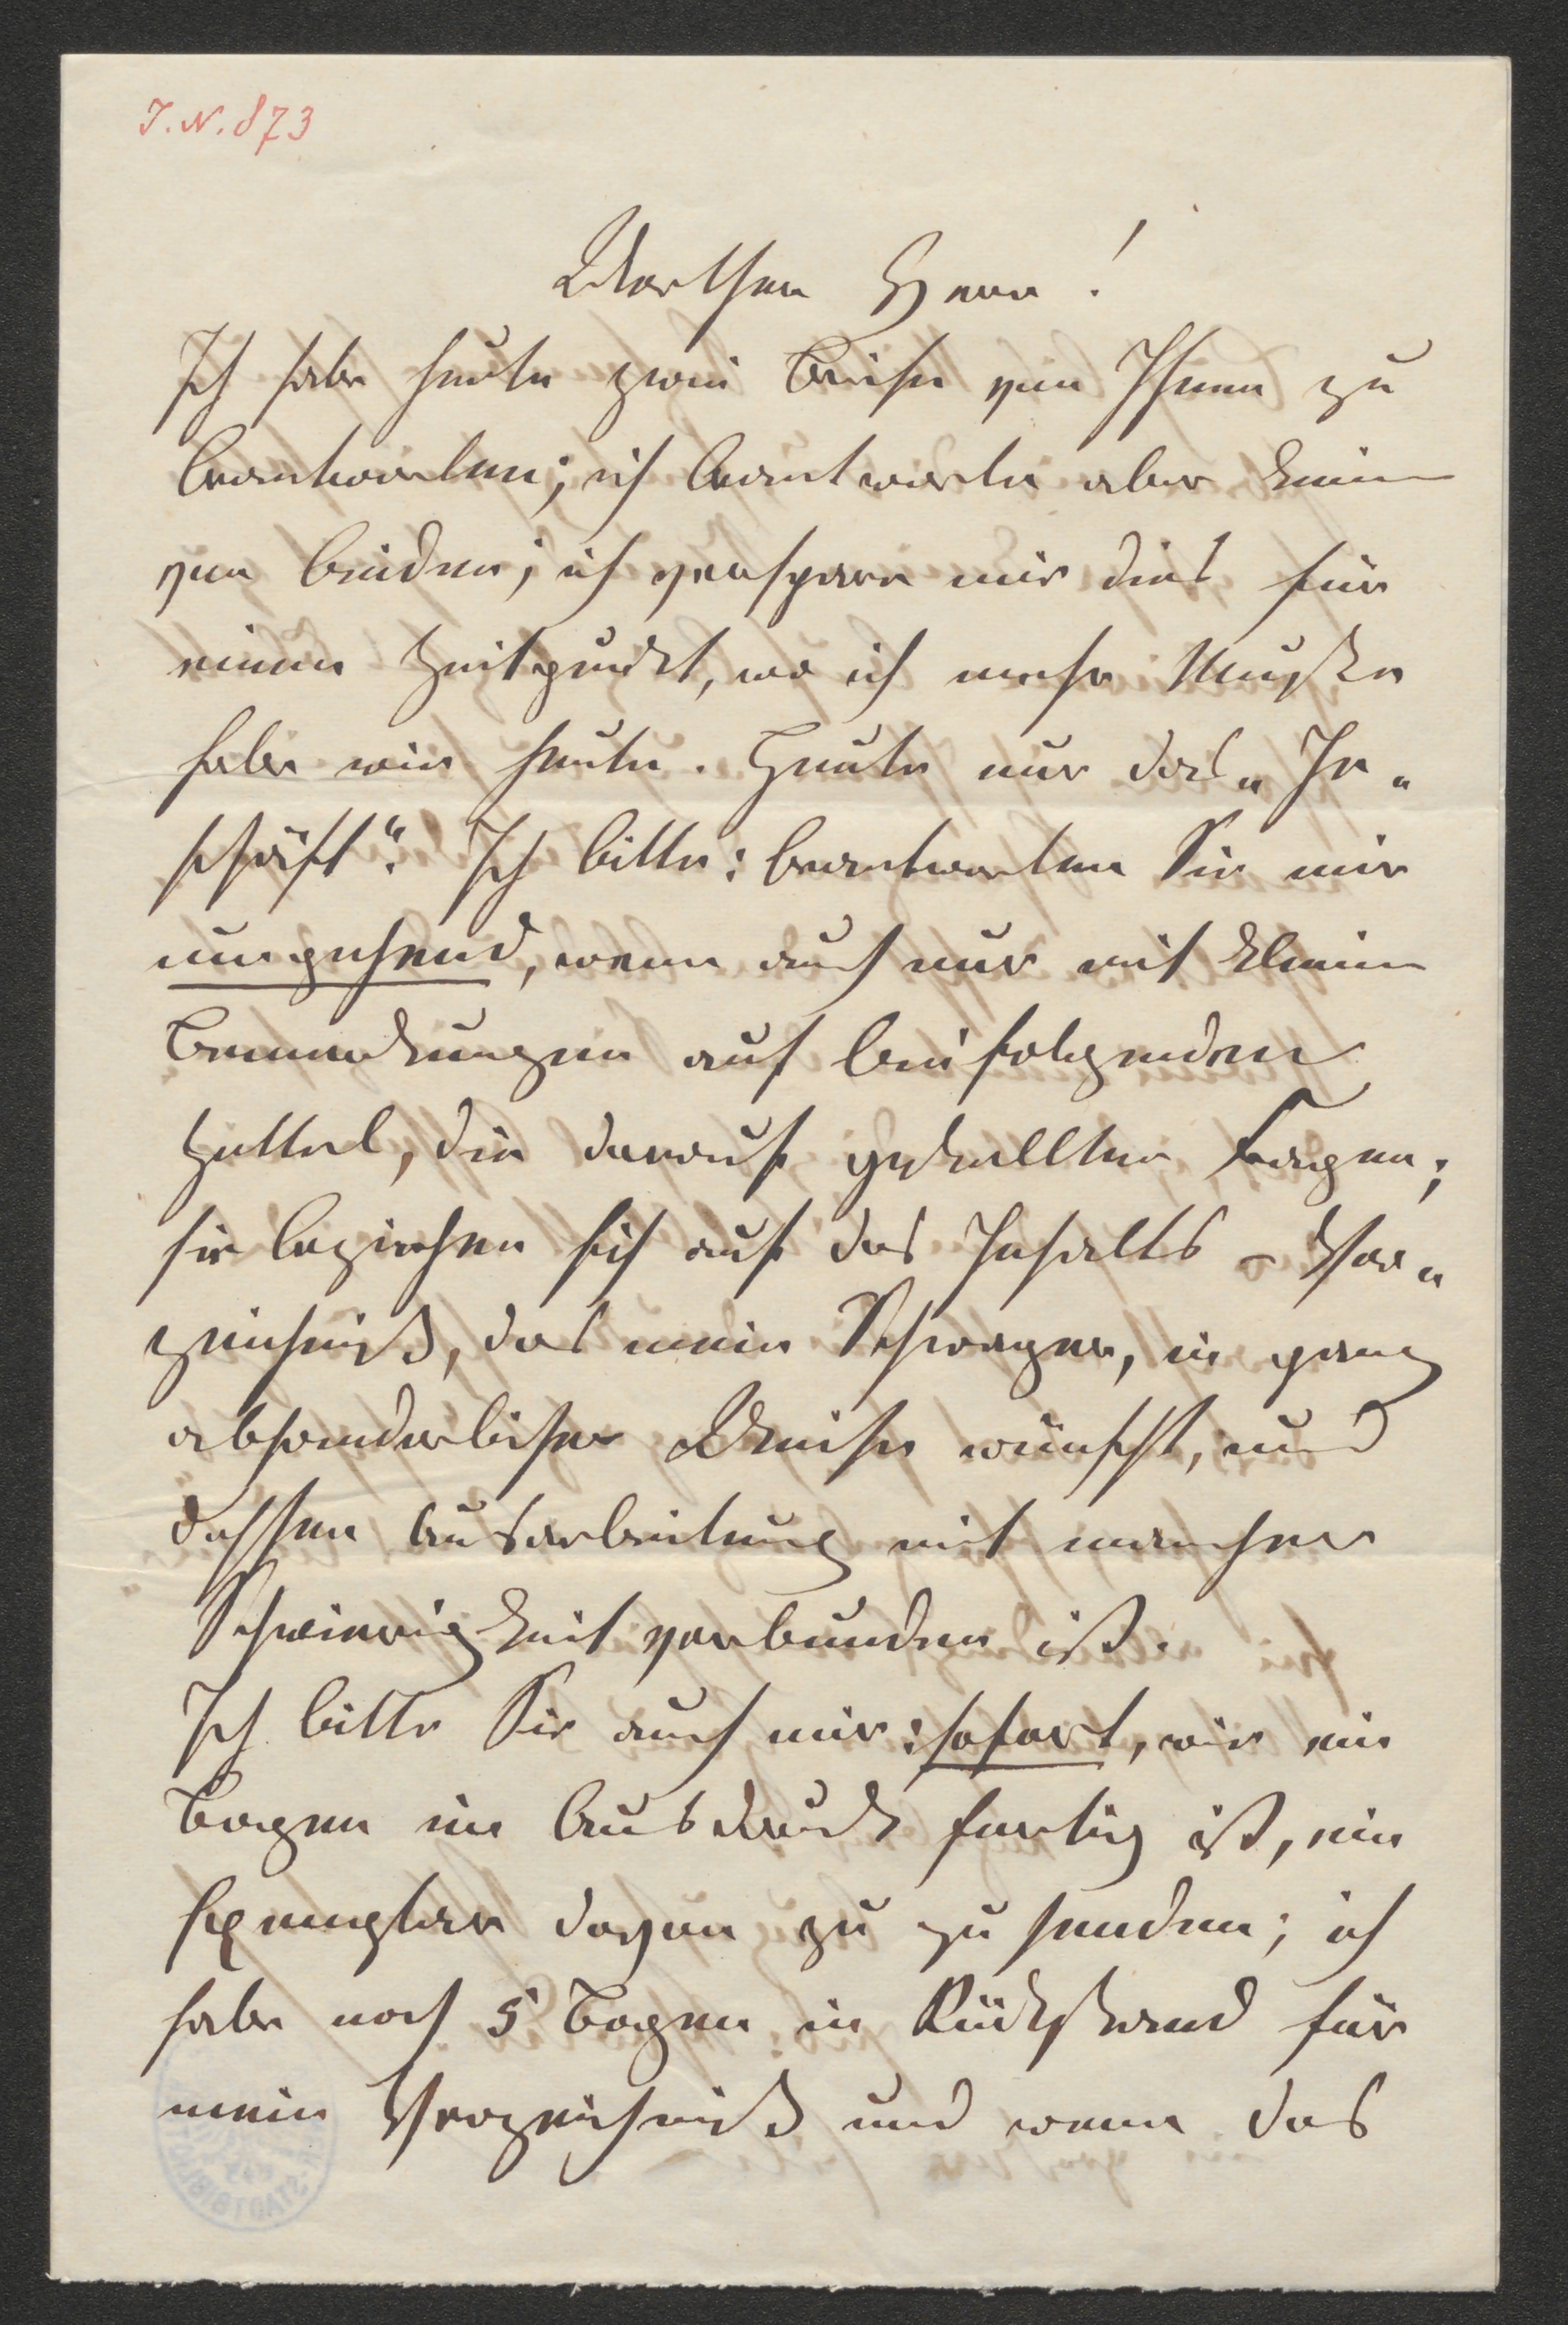 J. N. 873
Werther Herr!
Ich habe heute zwei Briefe von Ihnen zu
beantworten; ich beantworte aber keinen
von beiden; ich verspare mir dies für
einen Zeitpunkt, wo ich mehr Muße
habe wie heute. Heute nur das „Ge„
schäft“. Ich bitte: beantworten Sie mir
umgehend, wenn auch nur mit kleinen
Bemerkungen auf beifolgenden
Zettel, die darauf gestellten Fragen;
sie beziehen sich auf das Inhalts-Ver„
zeichniß, das mein Schwager, in ganz
absonderlicher Weise wünscht, und
dessen Ausarbeitung mit mancher
Schwierigkeit verbunden ist.
Ich bitte Sie auch mir: sofort, wie ein
Bogen im Ausdruck fertig ist, ein
Exemplar davon zu zu senden; ich
habe noch 5 Bogen in Rückstand für
mein Verzeichniß und wenn das